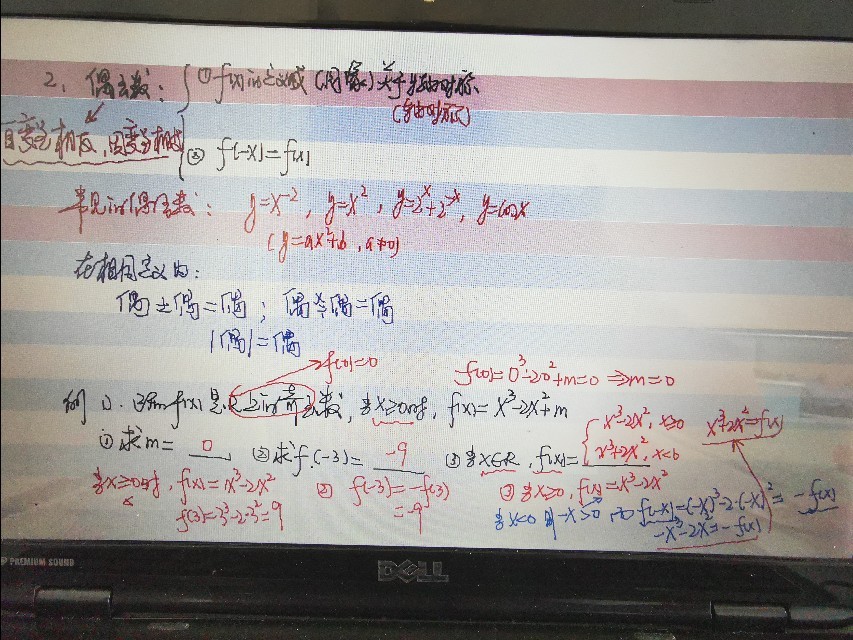 2、偶函数: ① f(x)的定义域(图象)关于y轴对称
(轴对称)
自变量相反,因变量相等
② f(-x)=f(x)
常见的偶函数: y=x⁻², y=x², y=2ˣ+2⁻ˣ, y=cosx
(y=ax²+b, a≠0)
在相同定义内:
偶±偶=偶; 偶×÷偶=偶
|偶|=偶
f(0)=0
f(0)=0³-2·0²+m=0 ⇒m=0
例1、已知f(x)是R上的奇函数, 当x≥0时, f(x)=x³-2x²+m
①求m= 0 ②求f(-3)= -9 ③当x∈R, f(x)= { x³-2x², x≥0
x³+2x², x<0
x³+2x²=f(x)
当x≥0时, f(x)=x³-2x² ② f(-3)=-f(3) ③当x≥0, f(x)=x³-2x²
f(3)=3³-2·3²=9 =-9 当x<0时 -x>0 f(-x)=(-x)³-2·(-x)²=-f(x)
-x³-2x²=-f(x)
PREMIUM SOUND
DELL